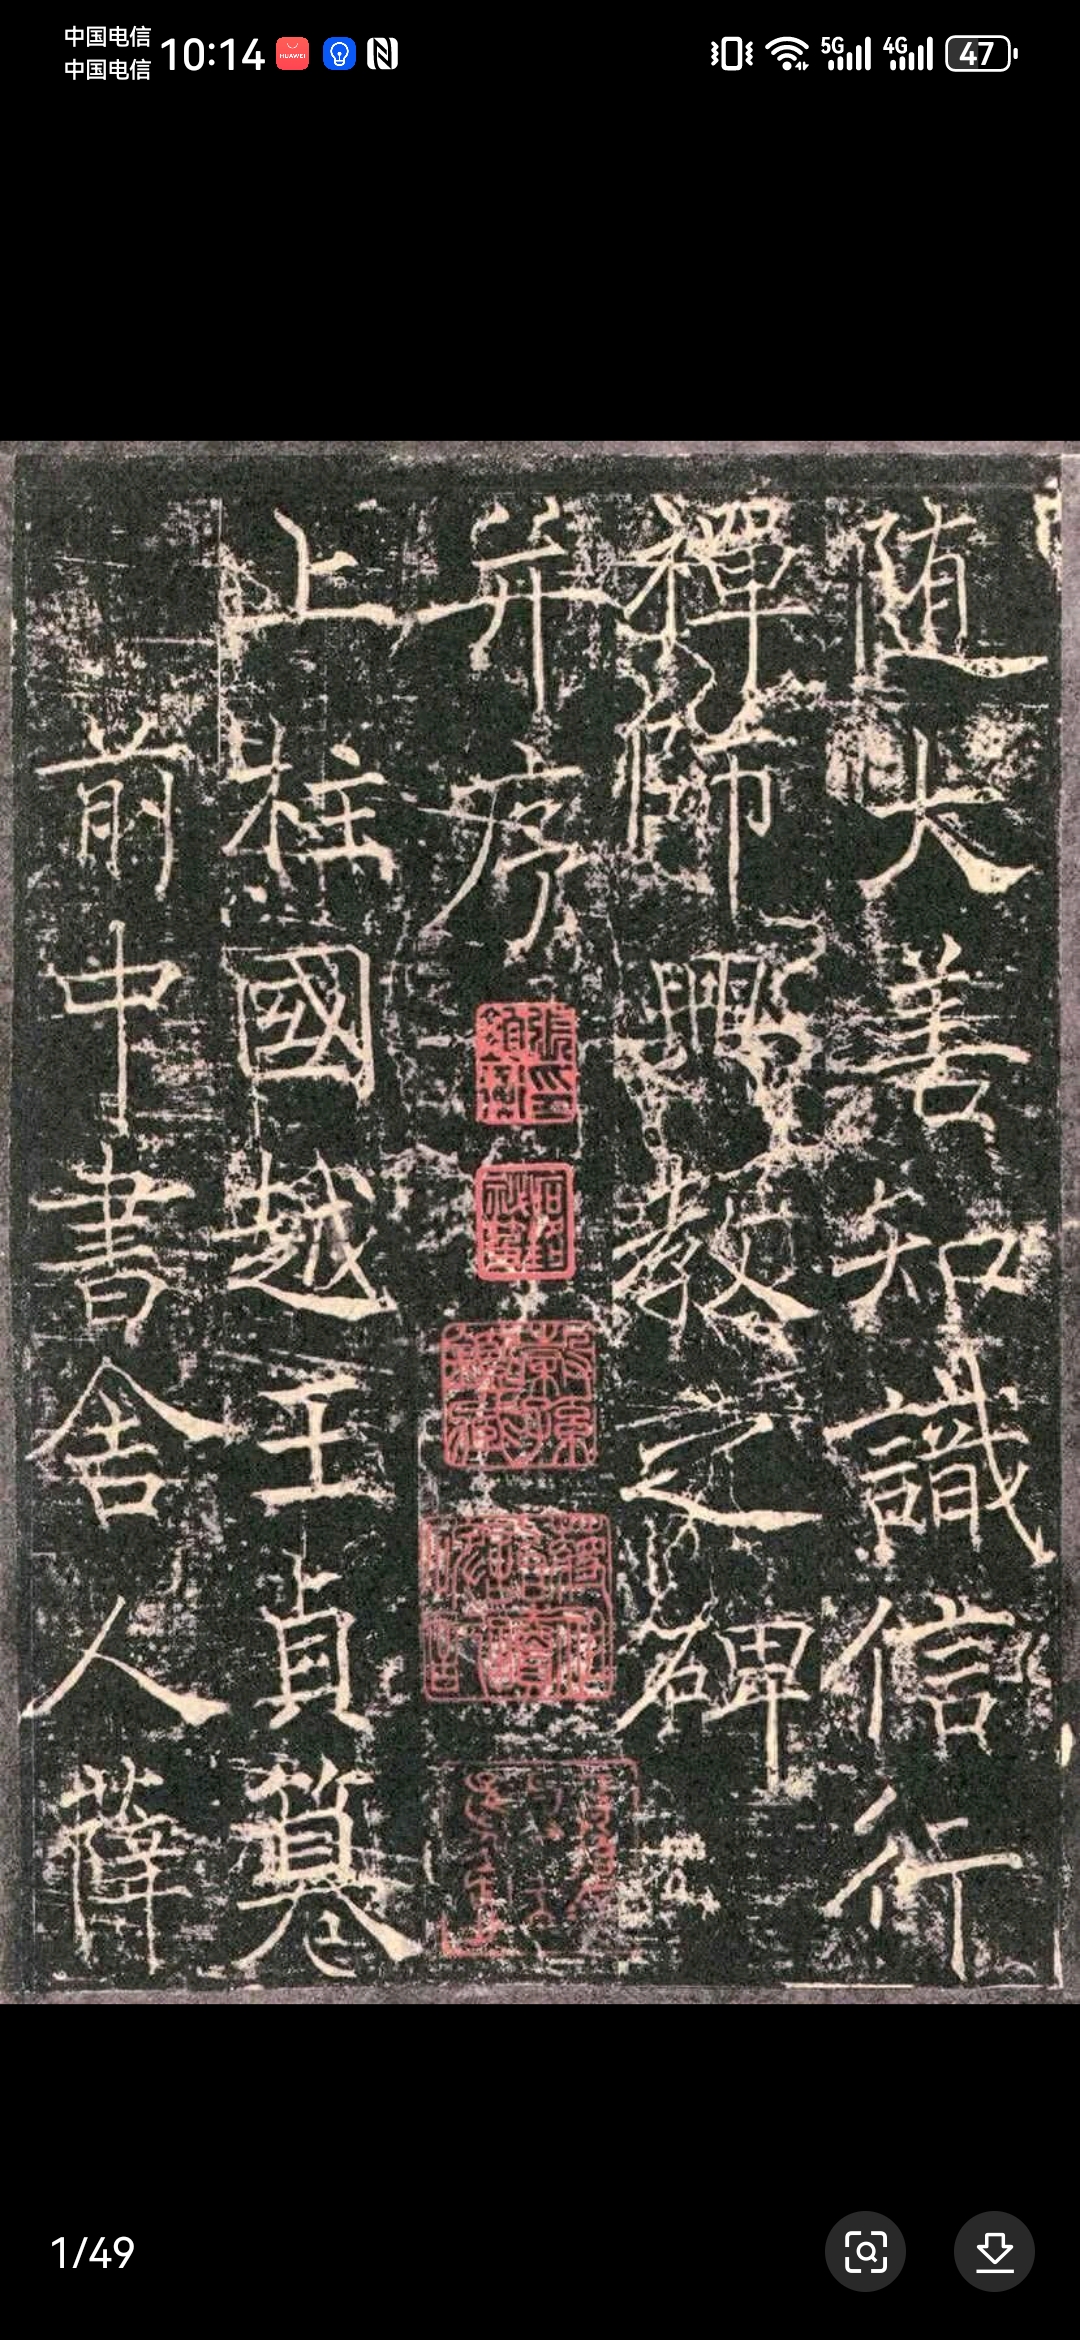 中国电信
中国电信
10:14
HUAWEI
5G
4G
47
随大善知識信行
禪師興教之碑
并序
上柱國越王貞篡
前中書舍人薛
1/49